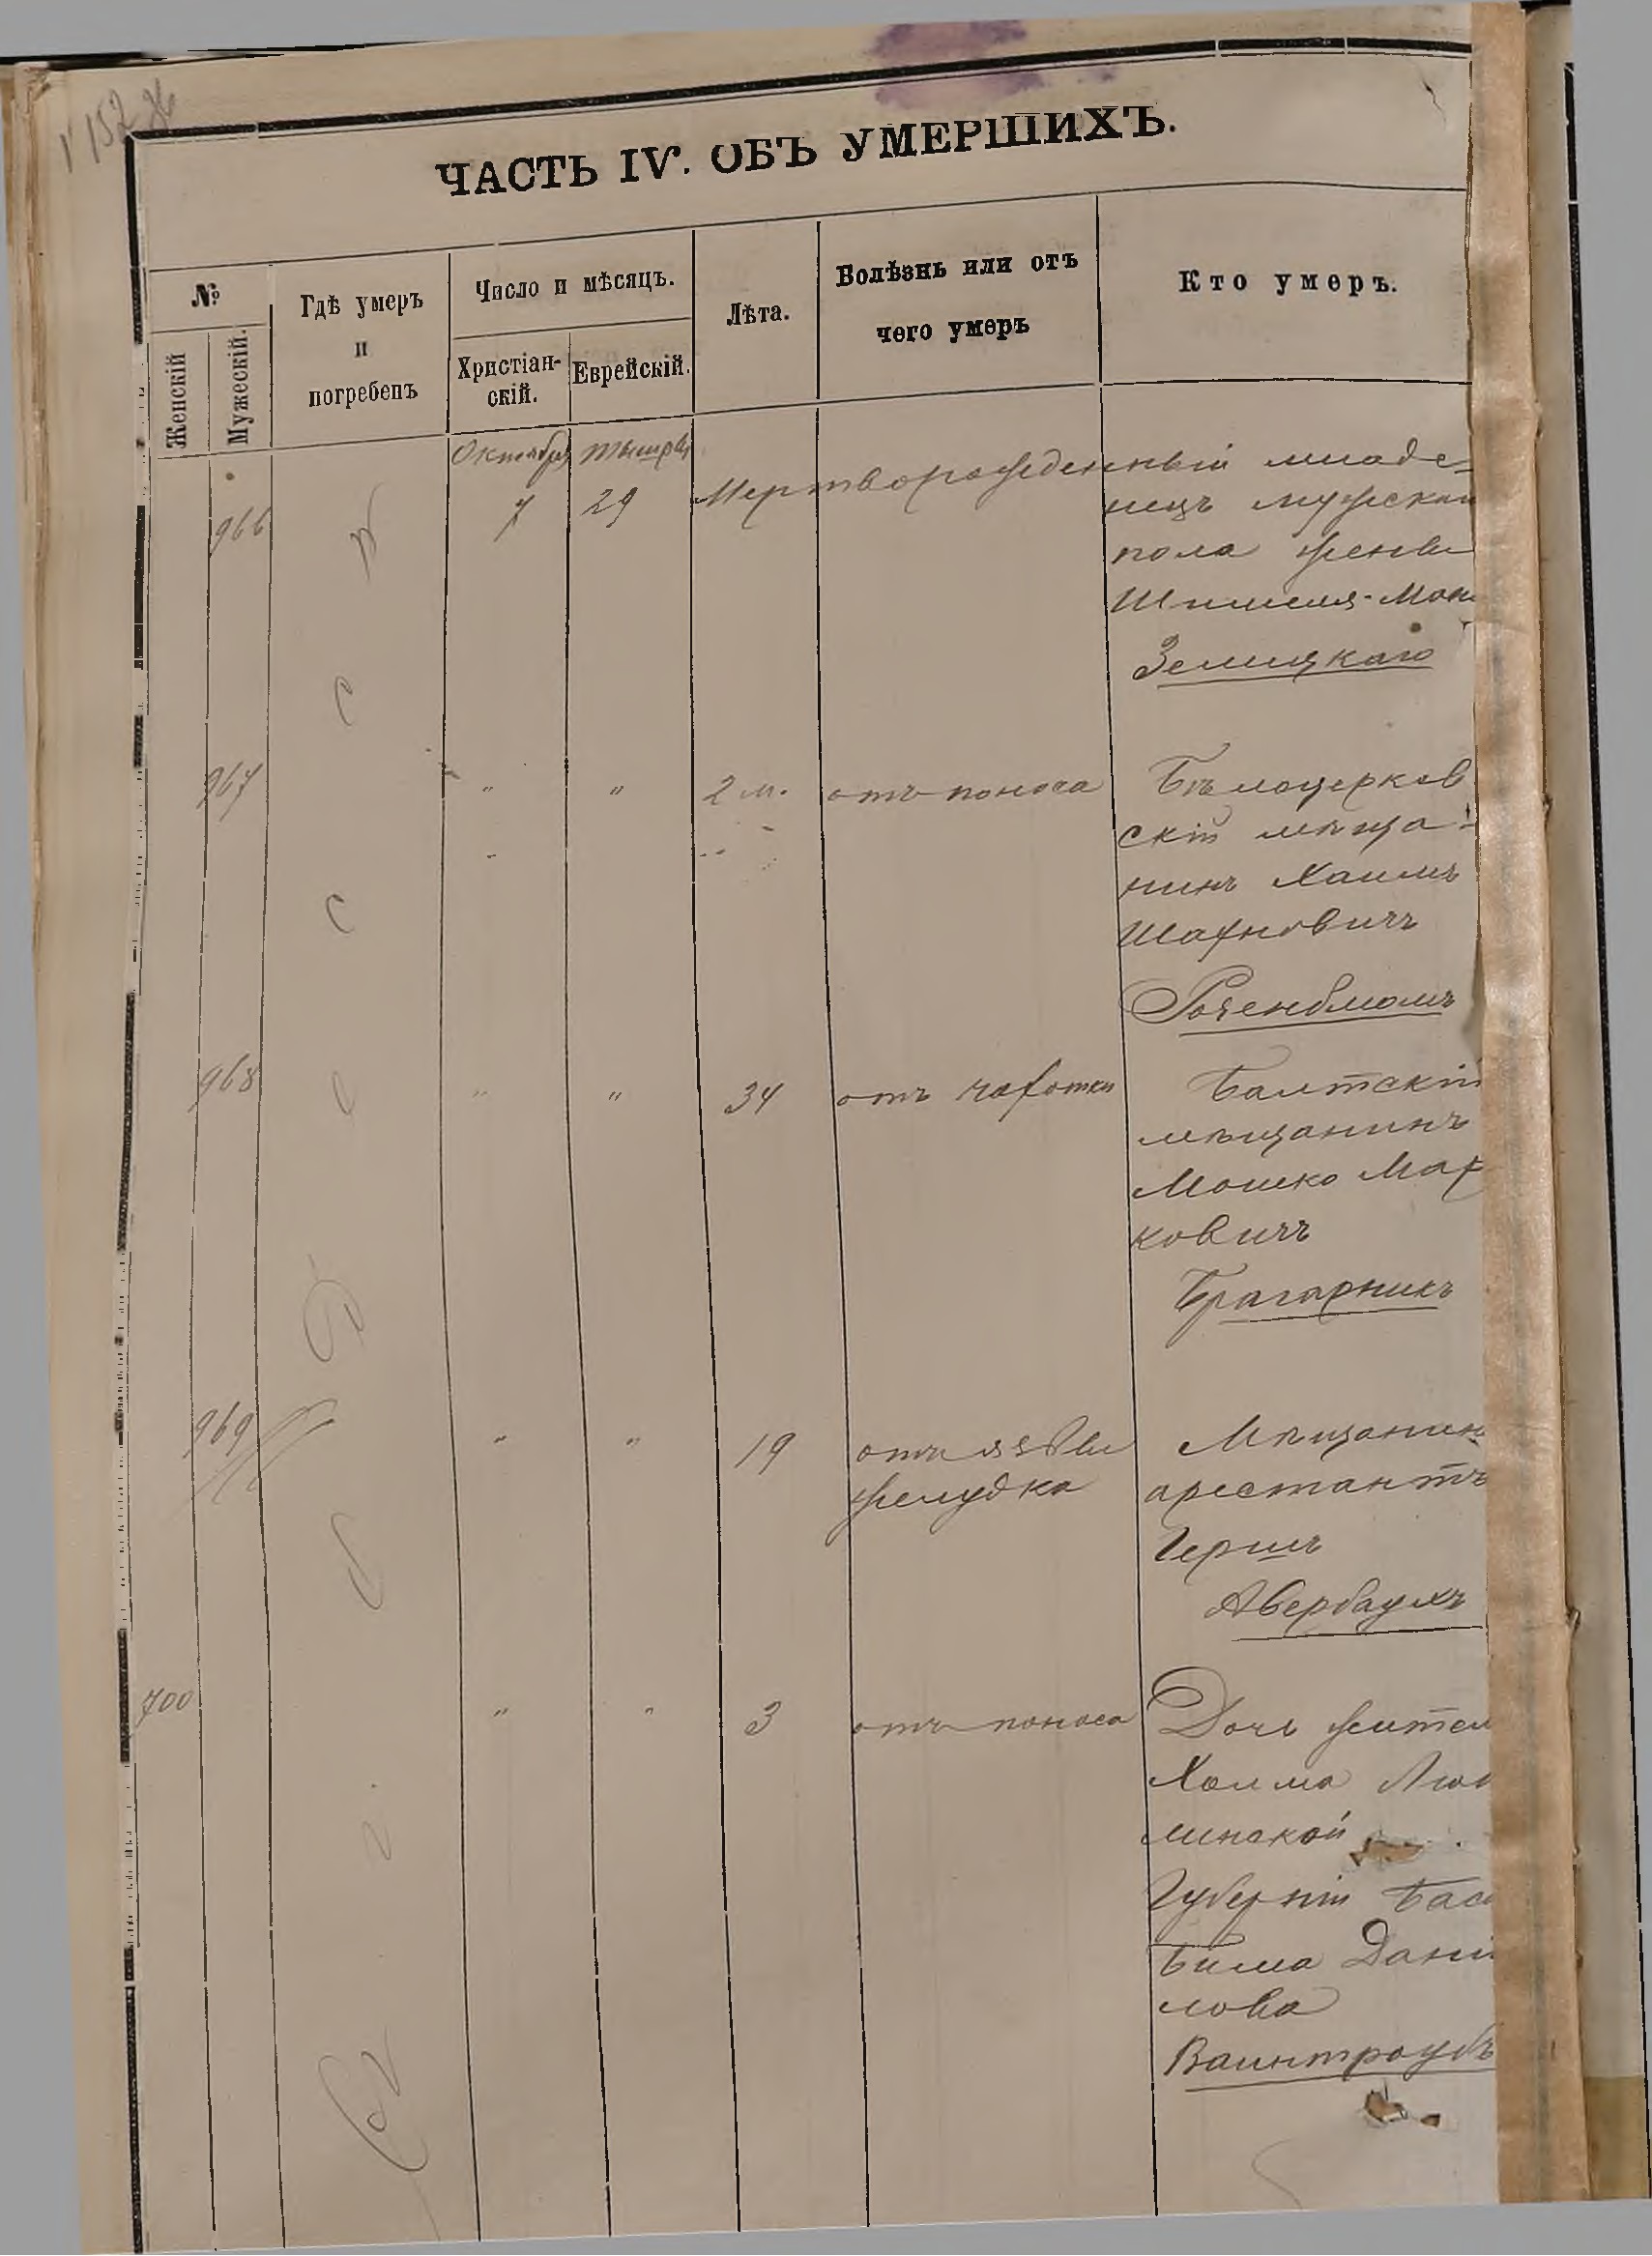 ЧАСТЬ IV. ОБЪ УМЕРШИХЪ.
№
Женскій
Мужескій.
Гдѣ умеръ
и
погребенъ
Число и мѣсяцъ.
Христіан-
скій.
Еврейскій.
Лѣта.
Болѣзнь или отъ
чего умеръ
Кто умеръ.
Октября Тышры
966 7 29 Мертворожденный младе-
нецъ мужскаго
пола жены
Шмиеля-
Земицкаго
967 " " 2 м. отъ поноса Бѣлоцерков
скій мѣща-
нинъ Хаимъ
Шахновичъ
Розенблюмъ
968 " " 34 отъ чахотки Балтскій
мѣщанинъ
Мошко Мар
ковичъ
Брагарникъ
969 " " 19 отъ язвы Мѣщанинъ
желудка арестантъ
Гершъ
Авербаухъ
700 " " 3 отъ поноса Дочь жителя
Холма Люб
линской
Губерніи Бася
Бима Дани
лова
Ваинтраубъ